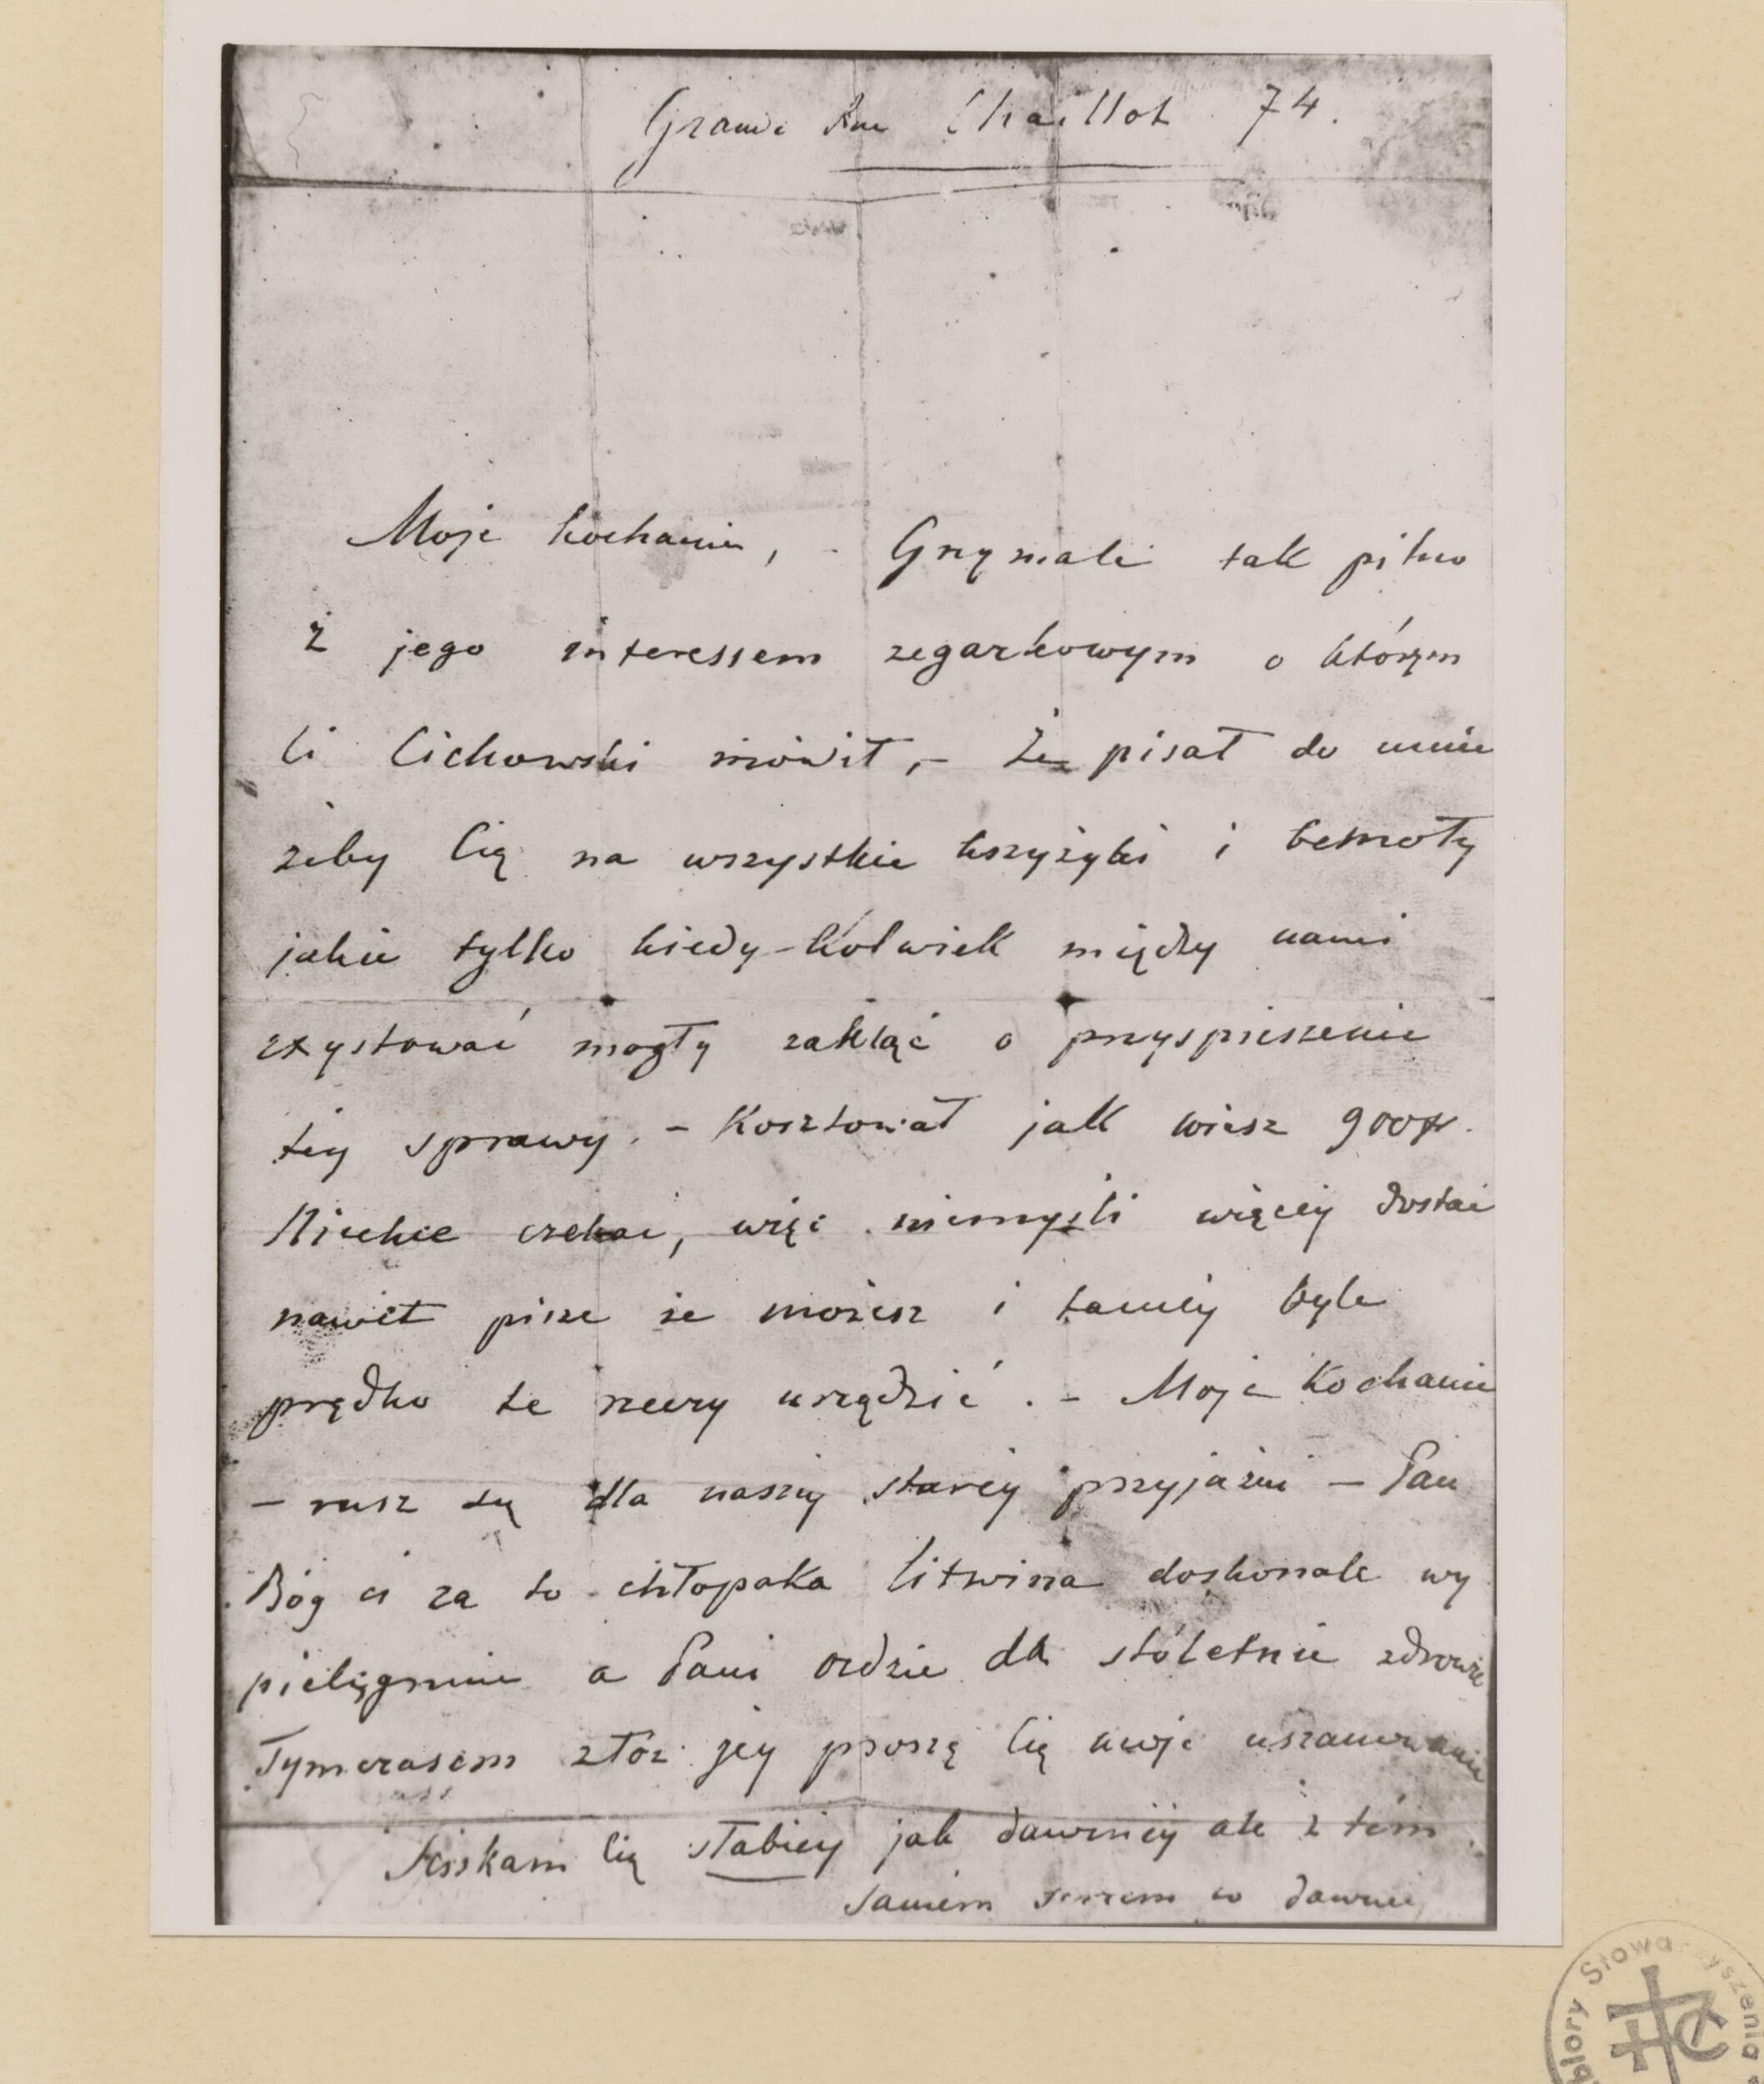 Grande Rue Chaillot 74.
Moje kochanie, - Grzymale tak pilno
z jego interessem zegarkowym o którym
Ci Cichowski mówił, - że pisał do mnie
żeby Cię na wszystkie krzyżyki i bemoły
jakie tylko kiedy-kolwiek między nami
exystować mogły zakląć o przyspieszenie
tey sprawy. - Kosztował jak wiesz 900 fr.
Niechce czekać, więc niemyśli więcey dostać
nawet pisze że możesz i taniey byle
prędko te rzeczy urządzić. - Moje Kochanie
- rusz się dla naszey starey przyjaźni - Pan
Bóg ci za to chłopaka litwina doskonale wy
pielęgnuie a Pani da stóletnie zdrowie
Tymczasem złoż jey proszę Cię moje uszanowanie
Sciskam Cię słabiey jak dawniey ale z tém
samem sercem co dawniey
Zbiory Stowarzyszenia